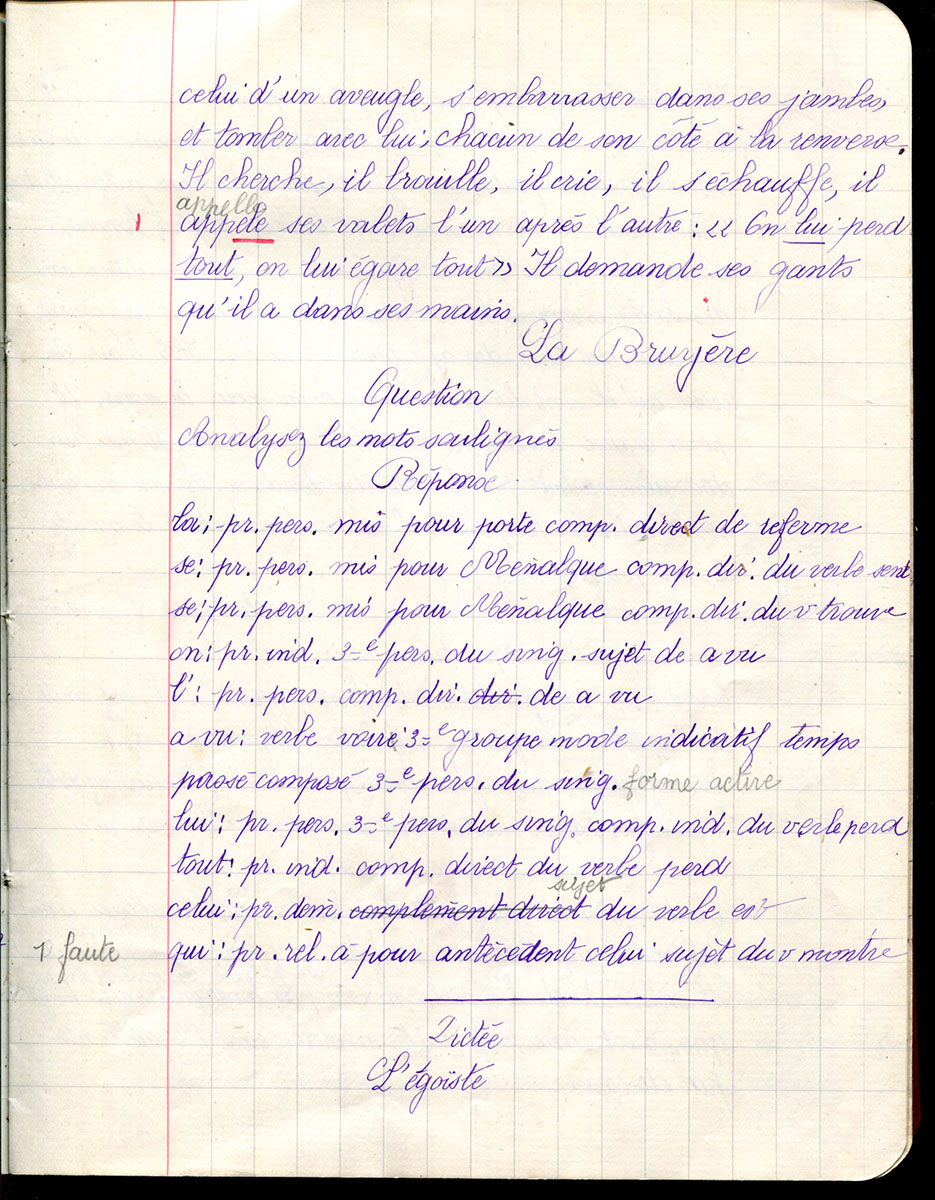 celui d'un aveugle, s'embarrasser dans ses jambes,
et tomber avec lui, chacun de son côté à la renverse.
Il cherche, il brouille, il crie, il s'échauffe, il
appelle
1 appèle ses valets l'un après l'autre : << On lui perd
tout, on lui égare tout >> Il demande ses gants
qu'il a dans ses mains.
La Bruyère
Question
Analysez les mots soulignés
Réponse
la; pr. pers. mis pour porte comp. direct de referme
se: pr. pers. mis pour Ménalque comp. dir. du verbe sent
se; pr. pers. mis pour Ménalque comp. dir. du v trouve
on: pr. ind. 3e pers. du sing. sujet de a vu
l': pr. pers. comp. dir. dir. de a vu
a vu: verbe voire 3e groupe mode indicatif temps
passé composé 3e pers. du sing. forme active
lui: pr. pers. 3e pers. du sing. comp. ind. du verbe perd
tout: pr. ind. comp. direct du verbe perd
sujet
celui; pr. dém. complément direct du verbe est
1 faute qui: pr. rel. à pour antécédent celui sujet du v montre
Dictée
L'égoïste